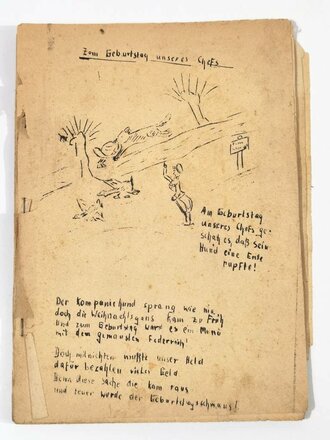 Zum Geburtstag unseres Chefs
Am Geburtstag
unseres Chefs ge-
schah es, daß sein
Hund eine Ente
rupfte!
Der Kompaniehund sprang wie nie,
doch die Weihnachtsgans kam zu früh
Und zum Geburtstag ward es ein Menü
mit dem gemausten Federvieh!
Doch mußte unser Held
dafür bezahlen vieles Geld
Denn diese Sache die kam raus
und teuer wurde der Geburtstagsschmaus!